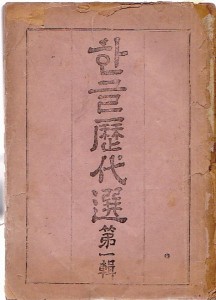 한글歷代選
第一輯